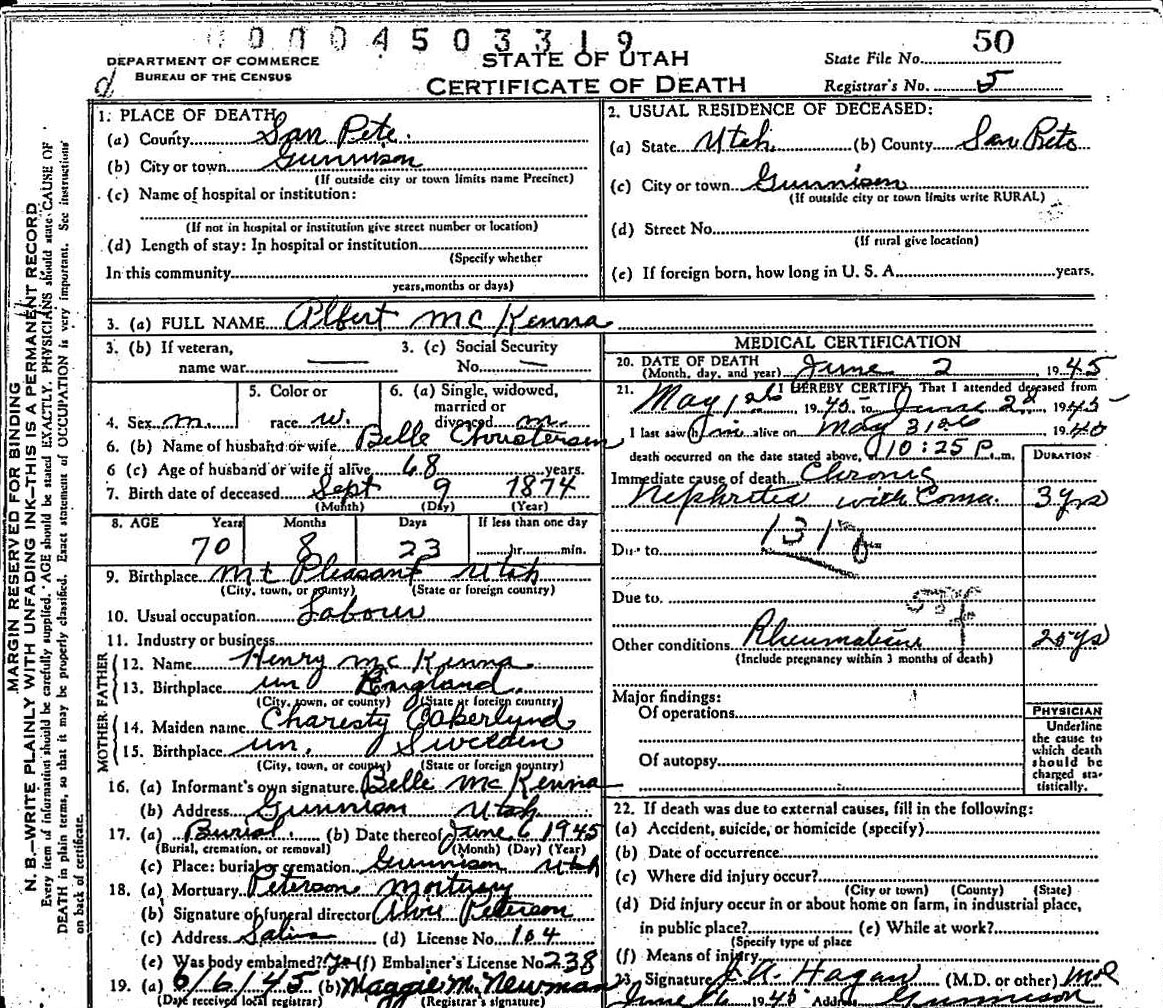 0004503319
DEPARTMENT OF COMMERCE
BUREAU OF THE CENSUS
STATE OF UTAH
CERTIFICATE OF DEATH
State File No. 50
Registrar's No. 5
MARGIN RESERVED FOR BINDING
N. B.—WRITE PLAINLY WITH UNFADING INK—THIS IS A PERMANENT RECORD
Every item of information should be carefully supplied. AGE should be stated EXACTLY. PHYSICIANS should state CAUSE OF
DEATH in plain terms, so that it may be properly classified. Exact statement of OCCUPATION is very important. See instructions
on back of certificate.
1. PLACE OF DEATH
(a) County San Pete.
(b) City or town Gunnison
(If outside city or town limits name Precinct)
(c) Name of hospital or institution:
(If not in hospital or institution give street number or location)
(d) Length of stay: In hospital or institution
(Specify whether
In this community
years, months or days)
2. USUAL RESIDENCE OF DECEASED:
(a) State Utah (b) County San Pete
(c) City or town Gunnison
(If outside city or town limits write RURAL)
(d) Street No.
(If rural give location)
(e) If foreign born, how long in U. S. A. years.
3. (a) FULL NAME Albert Mc Kenna
3. (b) If veteran, name war — 3. (c) Social Security No. —
4. Sex m. 5. Color or race w. 6. (a) Single, widowed, married or divorced m.
6. (b) Name of husband or wife Belle Christensen
6 (c) Age of husband or wife if alive 68 years.
7. Birth date of deceased Sept 9 1874
(Month) (Day) (Year)
8. AGE Years Months Days If less than one day
70 8 23 hr. min.
9. Birthplace Mt Pleasant Utah
(City, town, or county) (State or foreign country)
10. Usual occupation Labour
11. Industry or business
FATHER
12. Name Henry Mc Kenna
13. Birthplace un England.
(City, town, or county) (State or foreign country)
MOTHER
14. Maiden name Charesty
15. Birthplace un. Sweeden
(City, town, or county) (State or foreign country)
16. (a) Informant's own signature Belle Mc Kenna
(b) Address Gunnison Utah
17. (a) Burial. (b) Date thereof June 6 1945
(Burial, cremation, or removal) (Month) (Day) (Year)
(c) Place: burial or cremation Gunnison Utah
18. (a) Mortuary Peterson Mortuary
(b) Signature of funeral director Alvie Peterson
(c) Address Salina (d) License No. 104
(e) Was body embalmed? (f) Embalmer's License No. 238
19. (a) 6/6/45 (b) Maggie M. Newman
(Date received local registrar) (Registrar's signature)
MEDICAL CERTIFICATION
20. DATE OF DEATH June 2 1945
(Month, day, and year)
21. I HEREBY CERTIFY That I attended deceased from
May 1st 1940 to June 2d 1945
I last saw him alive on May 31st 1940
death occurred on the date stated above, 10:25 P. m.
DURATION
Immediate cause of death Chronic
Nephrites with Coma. 3 yrs
Due to 131
Due to
Other conditions Rheumatism 20 yrs
(Include pregnancy within 3 months of death)
Major findings:
Of operations
Of autopsy
PHYSICIAN
Underline
the cause to
which death
should be
charged sta-
tistically.
22. If death was due to external causes, fill in the following:
(a) Accident, suicide, or homicide (specify)
(b) Date of occurrence
(c) Where did injury occur?
(City or town) (County) (State)
(d) Did injury occur in or about home on farm, in industrial place,
in public place? (e) While at work?
(Specify type of place
(f) Means of injury
23. Signature J. A. Hagan (M.D. or other) MD
June 6 1945 Address Gunnison